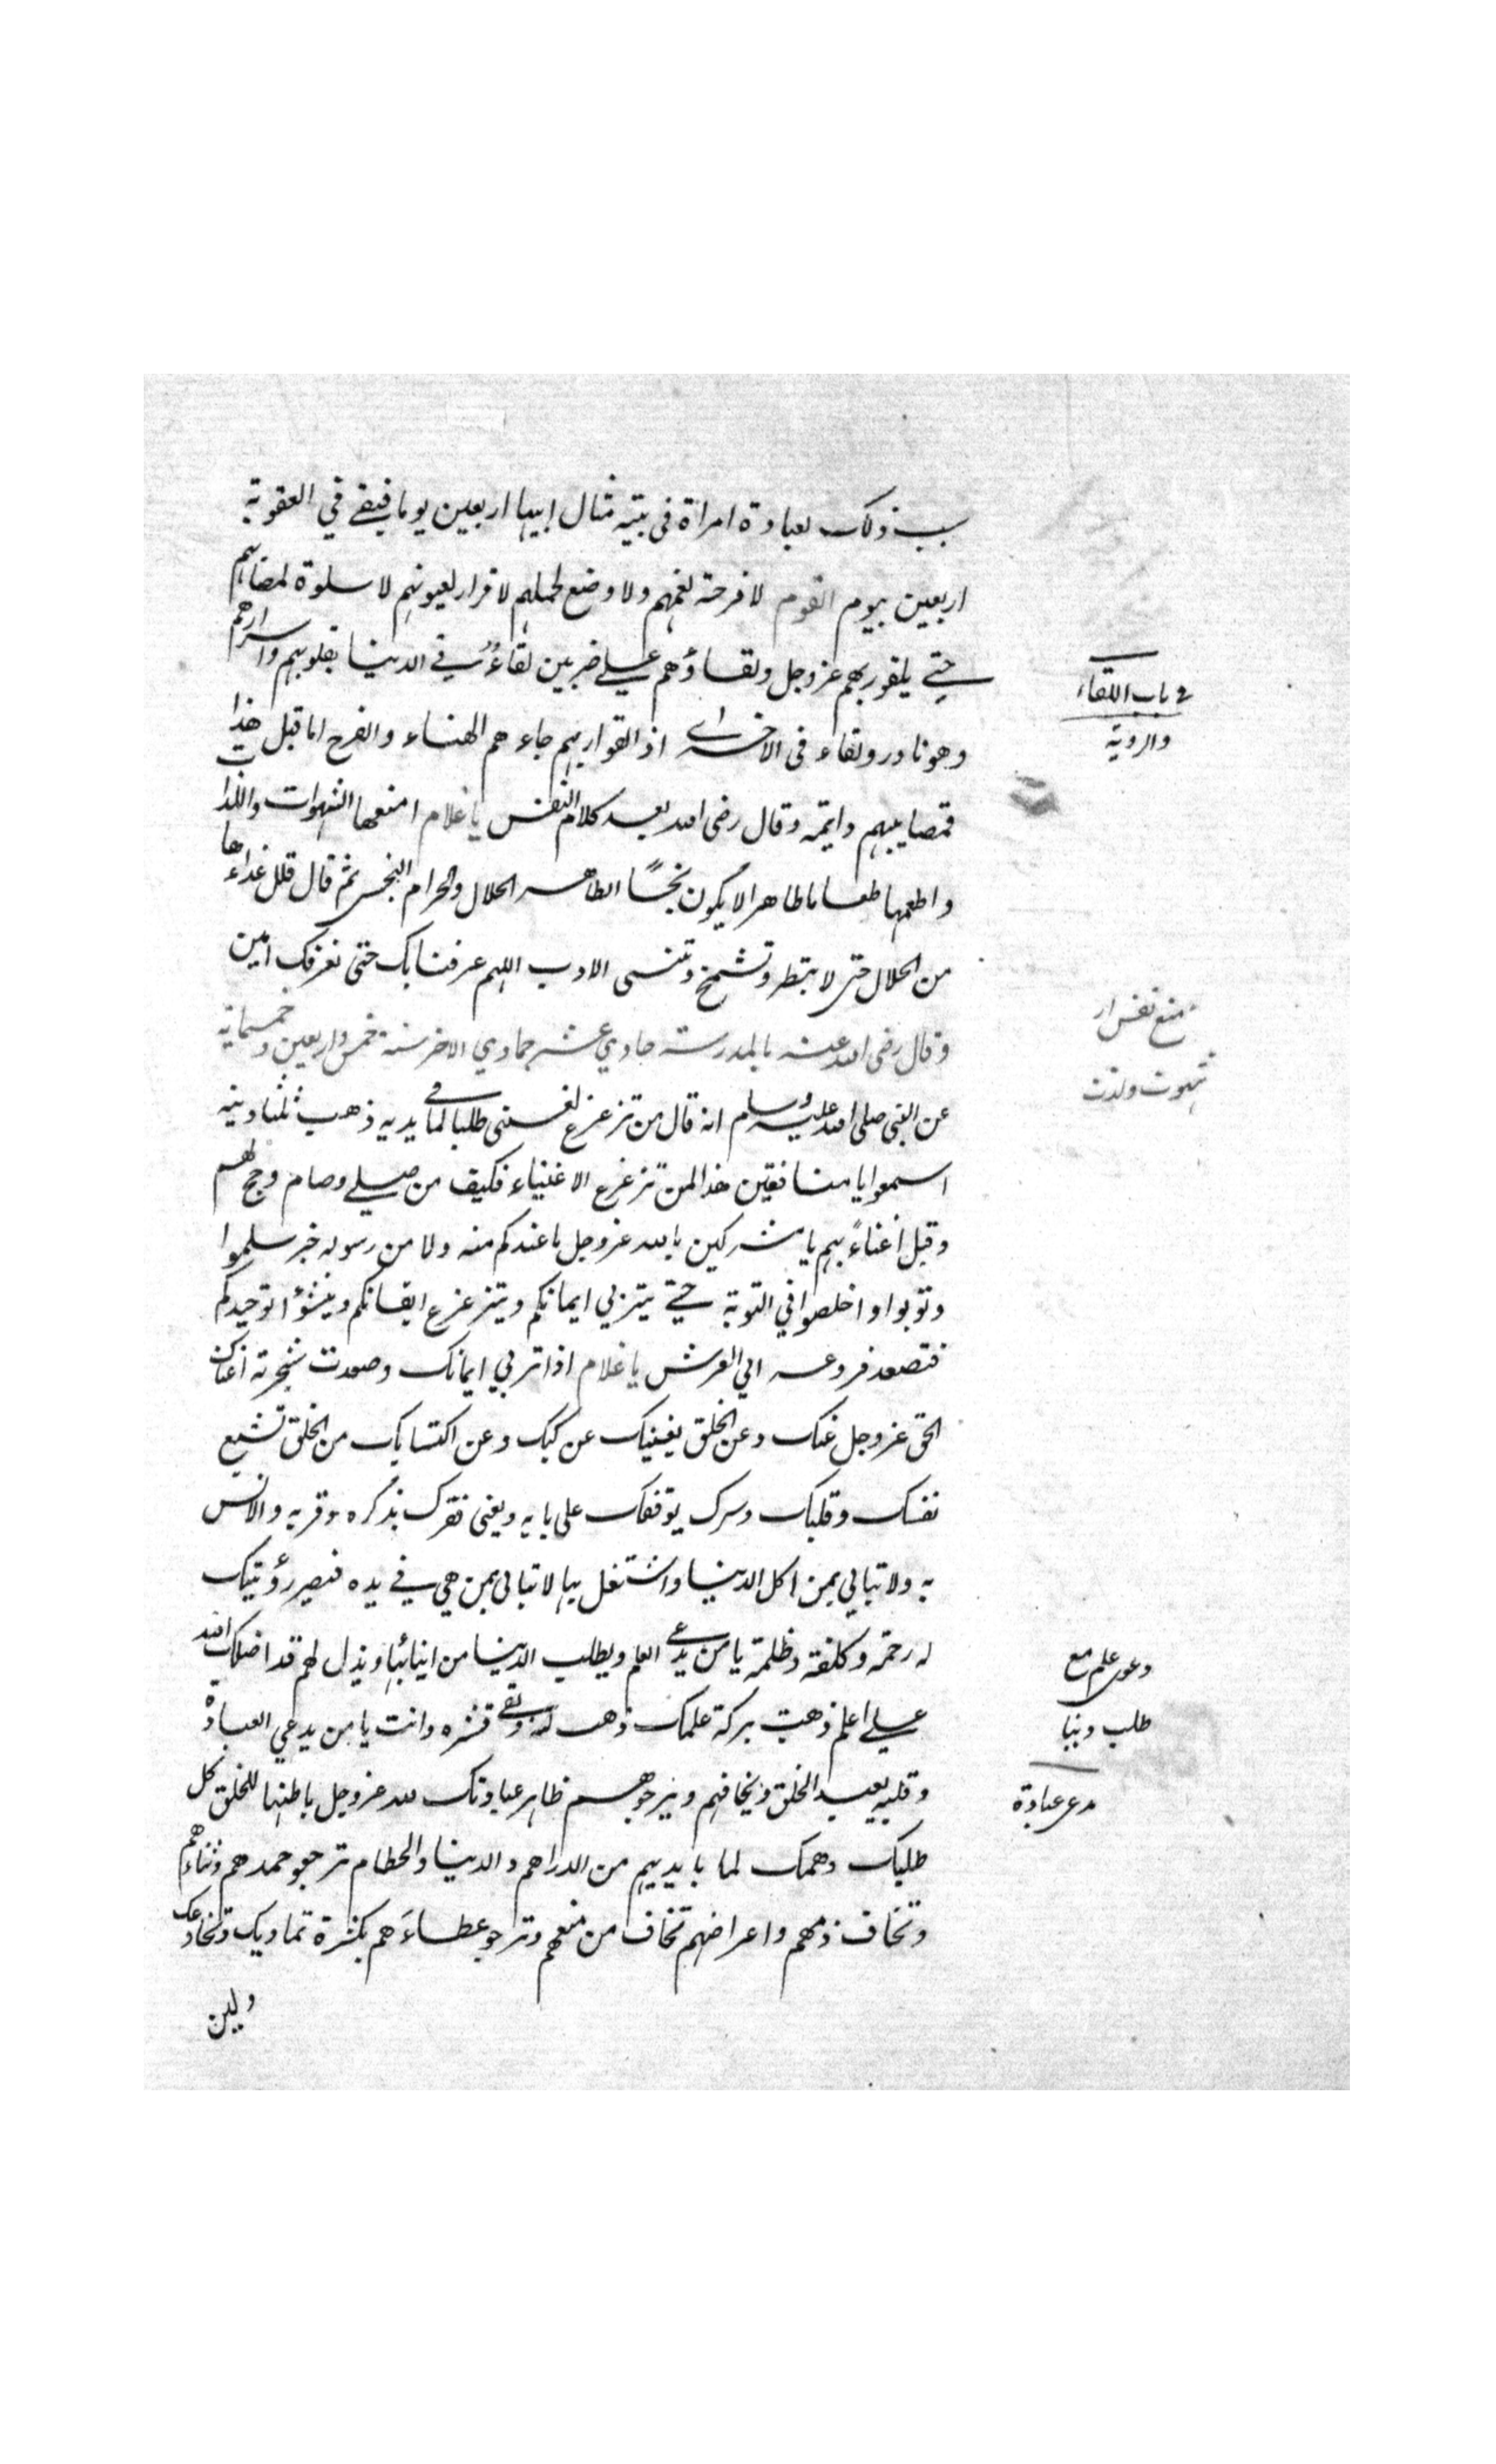 سبب ذلك لعبادة امراة فى بيته مثال ابيها اربعين يوما فبقے في العقوبة
اربعين بيوم القوم لا فرحة لغمهم ولا وضع لحملهم لا قرار لعيونهم لا سلوة لمصائبهم
حتے يلقو ربهم عز وجل ولقاؤهم علے ضربين لقاءٌ فے الدنيا بقلوبهم واسرارهم
وهو نادر ولقاء فى الاخرة اذ القوا ربهم جاء هم الهناء والفرح اما قبل هذا
فمصايبهم دايمة وقال رضى الله بعد كلام النفس يا غلام امنعها الشهوات واللذات
واطعمها طعاما طاهرا لا يكون نجسًا الطاهر الحلال والحرام النجس ثم قال قلل غذاءها
من الحلال حتى لا تبطر وتشمخ وتنسى الادب اللهم عرفنا بك حتى نعرفك امين
وقال رضى الله عنه بالمدرسة حادي عشر جمادي الاخر سنة خمس واربعين وخمسماية
عن النبى صلى الله عليه وسلم انه قال من تزعزع لغنى طلبا لما فى يديه ذهب ثلثا دينه
اسمعوا يا منافقين هذا لمن تزعزع الاغنياء فكيف من صلے وصام وحج لهم
وقبل اعناءً بهم يا مشركين بالله عز وجل ما عندكم منه ولا من رسوله خبر سلموا
وتوبوا واخلصوا في التوبة حتے يتربي ايمانكم ويتزعزع ايقانكم وينشؤا توحيدكم
فتصعد فروعه الي العرش يا غلام اذا تربي ايمانك وصعدت شجرته اغناك
الحق عز وجل عنك وعن الخلق يغنيك عن كبك وعن اكتسابك من الخلق تشبع
نفسك وقلبك وسرك يوقفك على بابه ويغنى فقرك بذكره وقربه والانس
به ولا تبالي بمن اكل الدنيا واشتغل بها لا تبالى بمن هي فے يده فتصير رؤيتك
له رحمة وكلفة وظلمة يا من يدعى العلم ويطلب الدنيا من ابنائها ويذل لهم قد اضلك الله
علے اعلم ذهبت بركة علمك ذهب لبه وبقے قشره وانت يا من يدعي العبادة
وقلبه يعبد الخلق ويخافهم ويرجوهم ظاهر عبادتك لله عز وجل باطنها للخلق كل
طلبك وهمك لما بايديهم من الدراهم والدينا والحطام ترجو حمدهم وثناءهم
وتخاف ذمهم واعراضهم تخاف من منعهم وترجو عطاءَهم بكثرة تماديك وتخادعك
ولين
فى باب اللقاء
والروية
منع نفس از
شهوت ولذت
دعوى علم مع
طلب دنيا
مدعى عبادة